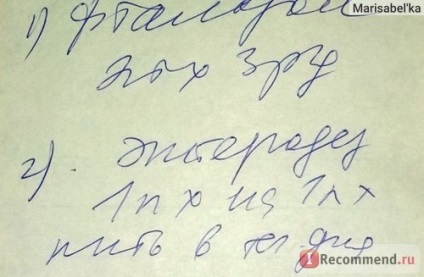 Marisabel'ka
1) Фталазол
2т х 3 р/д
2) Энтеродез
1п х на 1л х
пить в теч. дня
IRecommend.ru